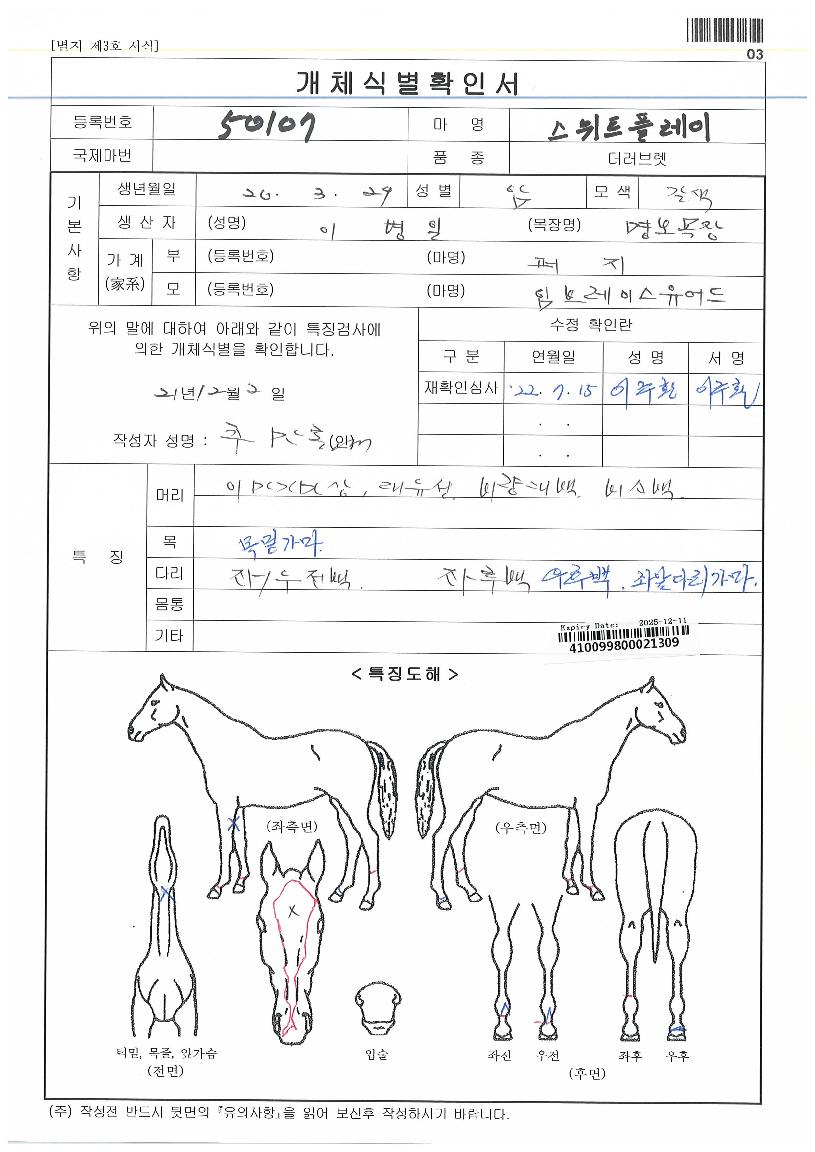 [별지 제3호 서식]
03
개체식별확인서
등록번호 50107 마 명 스위트플레이
국제마번 품 종 더러브렛
기본사항
생년월일 20. 3. 29 성별 암 모색 갈색
생산자 (성명) 이 병 일 (목장명) 명보목장
가계 (家系) 부 (등록번호) (마명) 퍼 지
모 (등록번호) (마명) 임브레이스유어드
위의 말에 대하여 아래와 같이 특징검사에
의한 개체식별을 확인합니다.
21년 12월 2일
작성자 성명 :
수정 확인란
구분 연월일 성명 서명
재확인심사 '22. 7. 15 이주환 이주환
. .
. .
특 징
머리
목 목밑가마.
다리 좌후백 우후백. 좌앞다리가마.
몸통
기타
Expiry Date: 2025-12-11
410099800021309
< 특징도해 >
(좌측면) (우측면)
턱밑, 목줄, 앞가슴
(전면)
입술
좌전 우전 좌후 우후
(후면)
(주) 작성전 반드시 뒷면의 『유의사항』을 읽어 보신후 작성하시기 바랍니다.